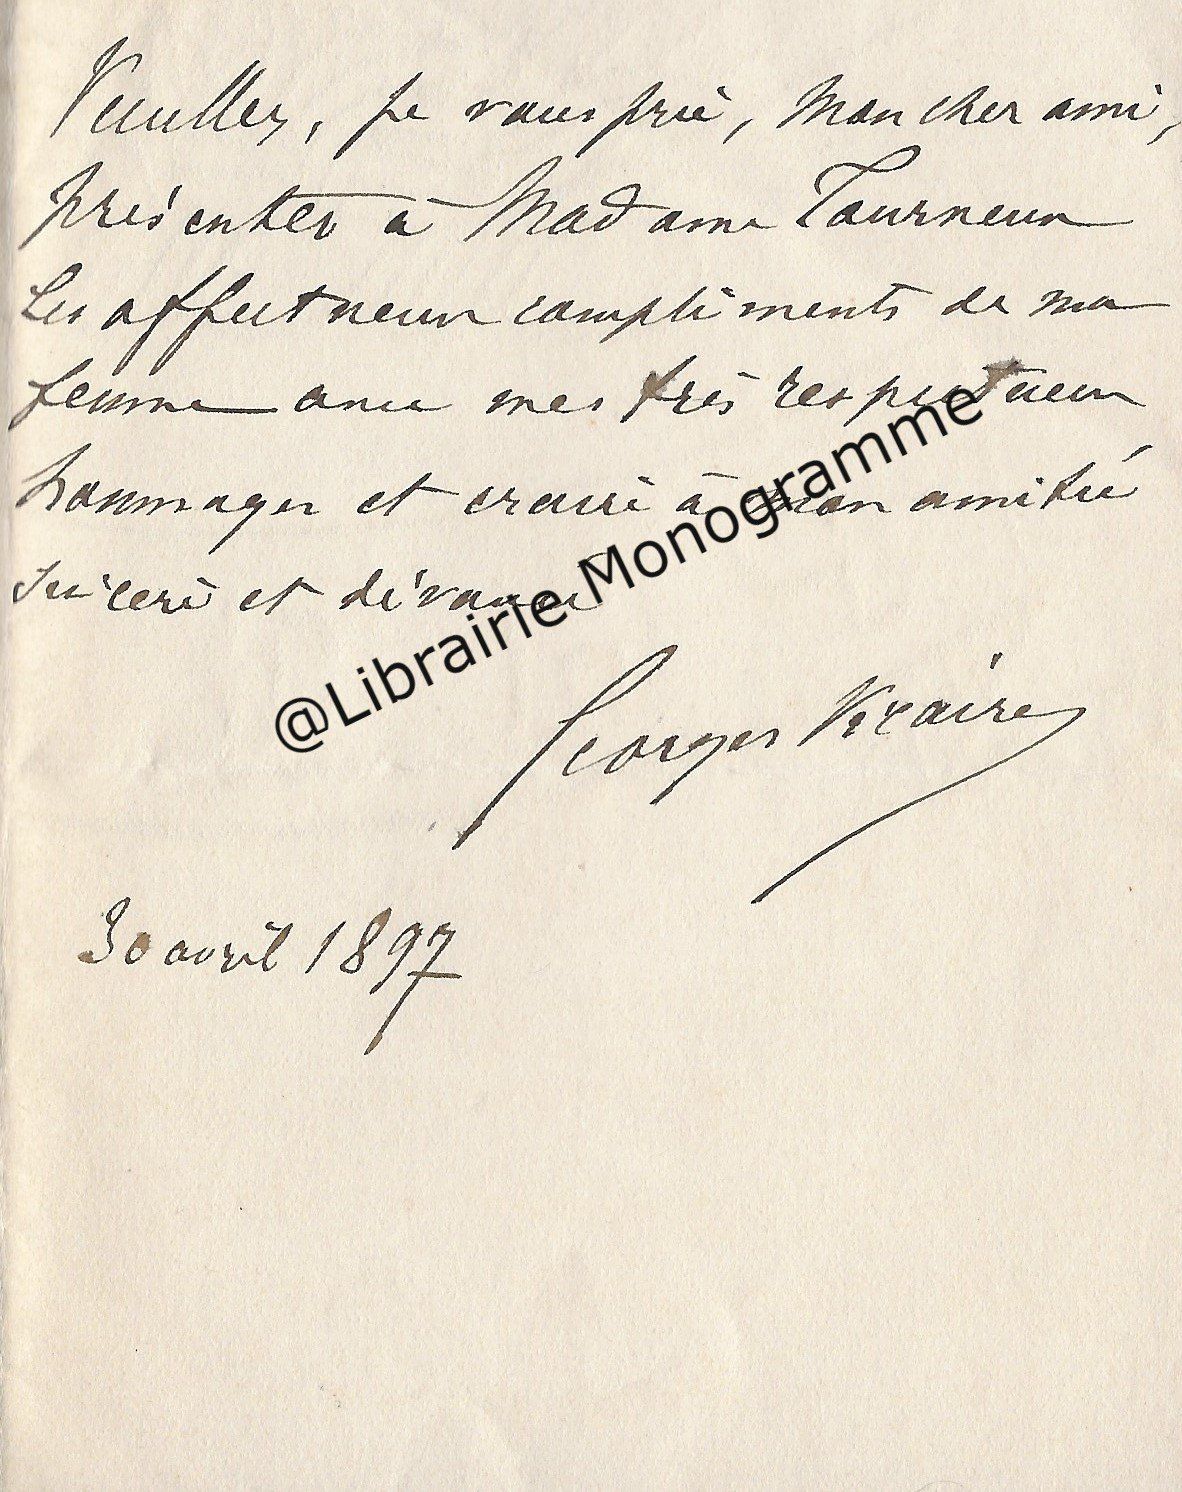 Veuillez, je vous prie, mon cher ami,
présenter à Madame Tourneux
les affectueux compliments de ma
femme avec mes très respectueux
hommages et croire à mon amitié
sincère et dévouée
@Librairie Monogramme
Georges Vicaire
30 avril 1897